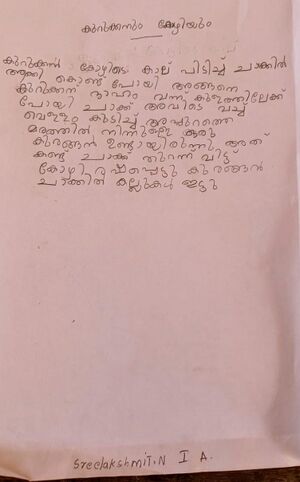 കുറുക്കനും കോഴിയും
കുറുക്കൻ കോഴിടെ കാല് പിടിച്ച് ചാക്കിൽ
ആക്കി കൊണ്ട് പോയി അങ്ങനെ
കുറിക്കന് ദാഹം വന്ന് കുളത്തിലേക്ക്
പോയി ചാക്ക് അവിടെ വച്ച്
വെള്ളം കുടിച്ച് അപ്പുറത്തെ
മരത്തിൽ നിന്നുള്ള ഒരു
കുരങ്ങൻ ഉണ്ടായിരുന്നു അത്
കണ്ട് ചാക്ക് തുറന്ന് വിട്ട്
കോഴി രക്ഷപ്പെട്ടു കുരങ്ങൻ
ചാക്കിൽ കല്ലുകൾ ഇട്ടു
Sreelakshmi T.N I A.